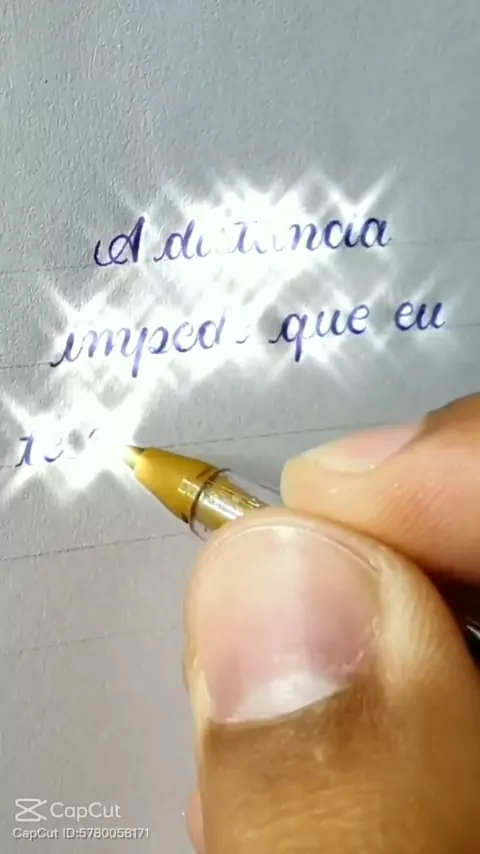 A distância
impede que eu
te
CapCut
CapCut ID:5780058171